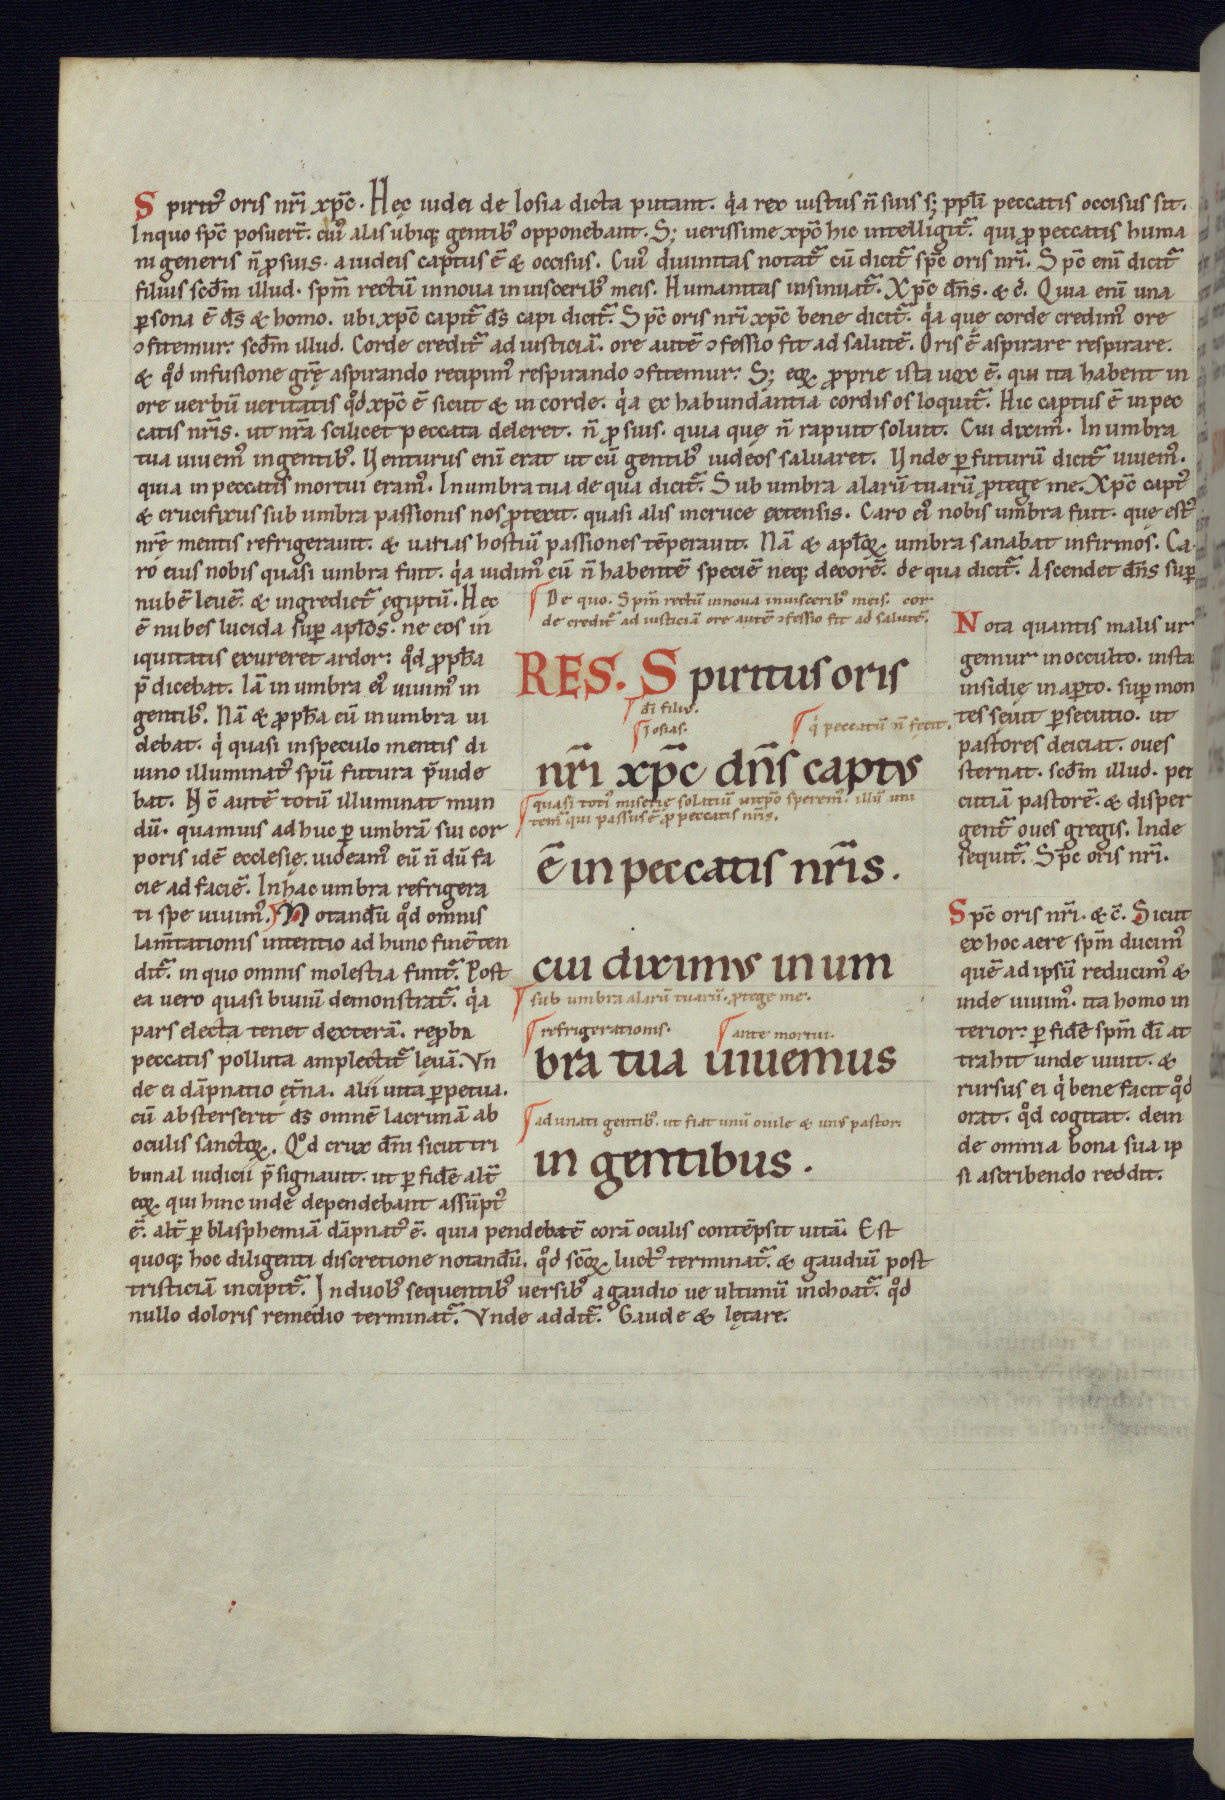 Spirit᷒ oris nr̄i xp̄c. Hec iudei de Iosia dicta putant. q̇a rex iustus n̄ suis s; pp̄li peccatis occisus sit.
In quo sp̄c posuer̄t. cui᷒ alas ubiq; gentib᷒ opponebant. S; uerissime xp̄c hic intelligit᷑. qui ꝓ peccatis huma
ni generis n̄ ꝓ suis. a iudeis captus ē & occisus. Cui᷒ diuinitas notat᷑ cū dicit᷑ sp̄c oris nr̄i. Sp̄c eni̅ dicit᷑
filius scd̄m illud. sp̄m rectū innoua in uisceribꝰ meis. Humanitas insinuat᷑. Xp̄c dn̄s. & c̄. Quia eni̅ una
ꝑsona ē d̄s & homo. ubi xp̄c capit᷑ d̄s capi dicit᷑. Sp̄c oris nr̄i xp̄c bene dicit᷑. q̇a que corde credimꝰ ore
ↄfitemur. scd̄m illud. Corde credit᷑ ad iusticiā. ore autē ↄfessio fit ad salutē. Oris ē aspirare respirare.
& qͦd infusione gr̄ę aspirando recipimꝰ respirando ↄfitemur. S; eoꝝ ꝓprie ista uox ē. qui ita habent in
ore uerbū ueritatis qͦd xp̄c ē sicut & in corde. q̇a ex habundantia cordis os loquit᷑. Hic captus ē in pec
catis nr̄is. ut nr̄a scilicet peccata deleret. n̄ ꝓ suis. quia quę n̄ rapuit soluit. Cui diximꝰ. In umbra
tua uiuemꝰ in gentibꝰ. Uenturus eni̅ erat ut cū gentibꝰ iudeos saluaret. Unde ꝑ futurū dicit᷑ uiuemꝰ.
quia in peccatis mortui eramꝰ. In umbra tua de qua dicit᷑. Sub umbra alarū tuarū ꝓtege me. Xp̄c captꝰ
& crucifixus sub umbra passionis nos ꝓtexit. quasi alis in cruce extensis. Caro eiꝰ nobis umbra fuit. quę estꝰ
nr̄ę mentis refrigerauit. & uarias hostiū passiones tēperauit. Nā & apl̄oꝝ umbra sanabat infirmos. Ca
ro eius nobis quasi umbra fuit. q̇a uidimꝰ eū n̄ habentē speciē neq; decorē. de qua dicit᷑. Ascendet dn̄s suꝑ
nubē leuē. & ingrediet᷑ ęgiptū. Hec
ē nubes lucida suꝑ apl̄os. ne eos in
iquitatis exureret ardor. qͦd ꝓph̄a
p̄dicebat. Iā in umbra eiꝰ uiuimꝰ in
gentibꝰ. Nā & ꝓph̄a eū in umbra ui
debat. q̇ quasi in speculo mentis di
uino illuminatꝰ spū futura p̄uide
bat. N̄c autē totū illuminat mun
dū. quamuis adhuc ꝑ umbrā sui cor
poris idē ecclesię. uideamꝰ eū n̄ dū fa
cie ad faciē. In hac umbra refrigera
ti spe uiuimꝰ. Notandū qͦd omnis
lam̄tationis intentio ad hunc finē ten
dit᷑. in quo omnis molestia finit᷑. Post
ea uero quasi biuiū demonstrat᷑. q̇a
pars electa tenet dexterā. reꝓba
peccatis polluta amplectit᷑ lęuā. Vn
de ei dāpnatio et̄na. alii uita ꝑpetua.
cū absterserit d̄s omnē lacrimā ab
oculis sanctoꝝ. Qͦd crux dn̄i sicut tri
bunal iudicii p̄signauit. ut ꝑ fidē alt᷑
eoꝝ qui hinc inde dependebant assūptꝰ
ē. alt᷑ ꝑ blasphemiā dāpnatꝰ ē. quia pendebatē corā oculis contēpsit uitā. Est
quoq; hoc diligenti discretione notandū. qͦd scōꝝ luctꝰ terminat᷑. & gaudiū post
tristiciā incipit᷑. In duobꝰ sequentibꝰ uersibꝰ a gaudio ue ultimū inchoat᷑. qͦd
nullo doloris remedio terminat᷑. Vnde addit᷑. Gaude & lętare.
De quo. Spm̄ rectū innoua in uisceribꝰ meis. cor
de credit᷑ ad iusticiā ore autē ↄfessio fit ad salutē.
RES. Spiritus oris
di̅ filiꝰ.
Iosias.
q̇ peccatū n̄ fecit.
nr̄i xp̄c dn̄s captus
quasi totiꝰ miserię solatiū in xp̄o speremꝰ. illū ui
temꝰ qui passus ē ꝓ peccatis nr̄is.
ē in peccatis nr̄is.
cui diximus in um
sub umbra alarū tuarū. ꝓtege me.
refrigerationis.
ante mortui.
bra tua uiuemus
adunati gentibꝰ. ut fiat unū ouile & unꝰ pastor.
in gentibus.
Nota quantis malis ur
gemur in occulto. insta
insidię in aꝑto. suꝑ mon
tes seuit ꝑsecutio. ut
pastores deiciat. oues
sternat. scd̄m illud. per
cutiā pastorē. & disper
gent᷑ oues gregis. Inde
sequit᷑. Sp̄c oris nr̄i.
Sp̄c oris nr̄i. & c̄. Sicut
ex hoc aere spm̄ ducimꝰ
quē ad ipsū reducimꝰ &
inde uiuimꝰ. ita homo in
terior. ꝑ fidē spm̄ di̅ at
trahit unde uiuit. &
rursus ei q̇ bene facit qͦd
orat. qͦd cogitat. dein
de omnia bona sua ip
si ascribendo reddit.